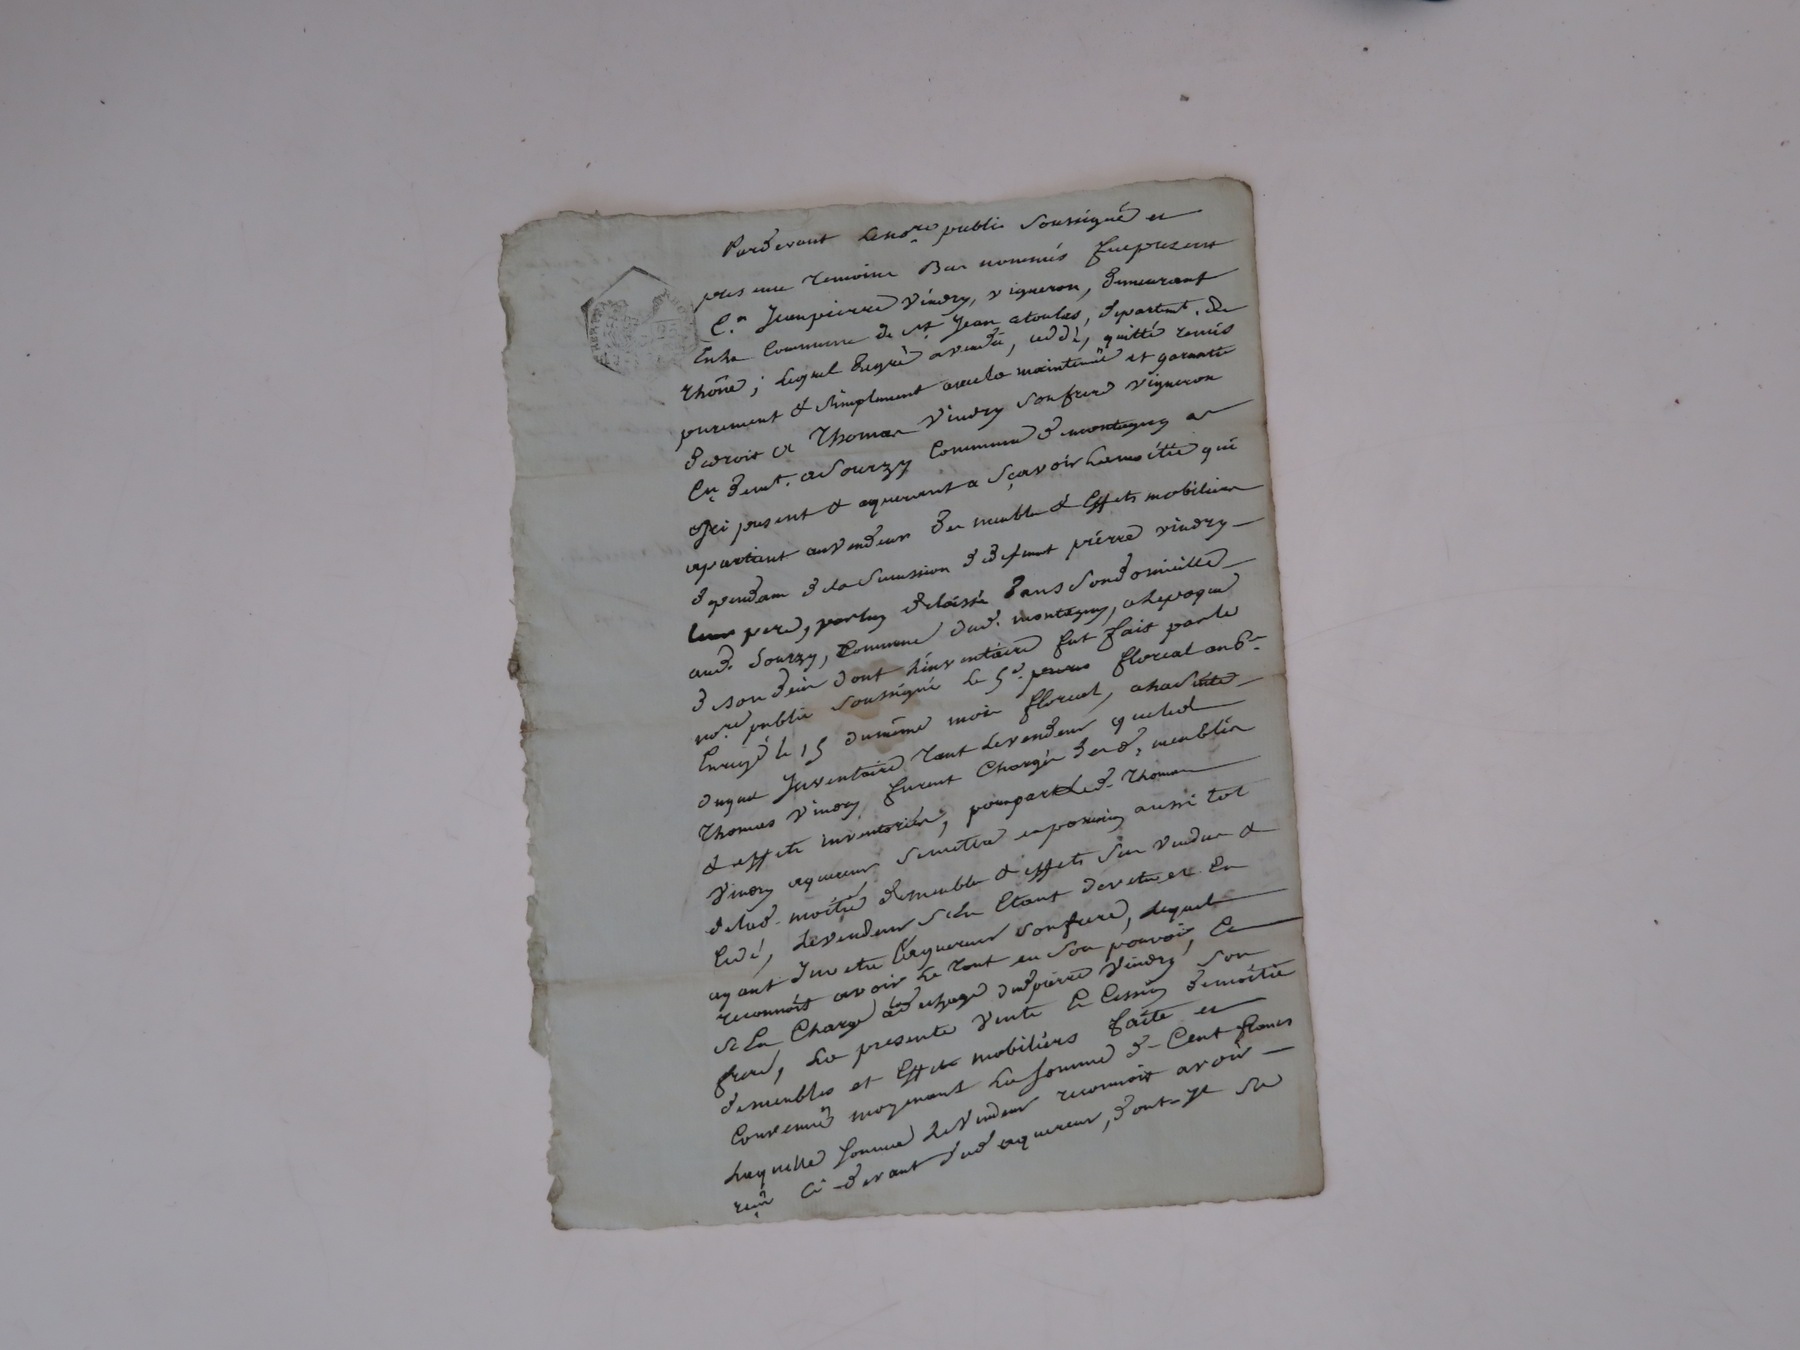 Pardevant Leno.re public Soussigné et
presence temoins Bas nommés fut present
C.n Jean pierre Vindry, vigneron, demeurant
En la Commune de st Jean atoulas, departemt. du
rhône; lequel degré a vendu, cedé, quitté remis
purement & simplement avec la maintenüe et garantie
de droit a Thomas Vindry son frere vigneron
demt. a Sourzy Commune de montagny a
present & aquereur a Sçavoir La moitié qui
apartient au vendeur des meubles & Effets mobiliers
dependans de la Sucession de defunt pierre vindry
leur pere, par luy delaissé dans Son domicille
aud. Sourzy, Commune dud. montagny, a Lepoque
de son deces dont L'inventaire fut fait par le
no.re public Soussigné le 5e floreal an 6.
Enregé le 15 du même mois floreal, a la Suite
duquel Inventaire tant le vendeur que led
Thomas Vindry furent Chargés desd. meubles
& effets inventoriés, pour par led. Thomas
Vindry aquereur se mettre en possession aussi tot
de lad. moitié de meubles & effets Sus vendus &
Cedés, Le vendeur S'en Etant devetu et En
ayant Investu L'aquereur Son frere, Lequel
reconnoit avoir Le tout en Son pouvoir, Ce
S'en Charge a la decharge dud pierre Vindry Son
frere, La presente Vente Et Cession de moitié
de meubles et Effets mobiliers faite et
Convenüe moyenant La Somme de Cent francs
Laquelle Somme Le Vendeur reconnoit avoir
reçu Ci-devant dud aquereur, dont-il Se